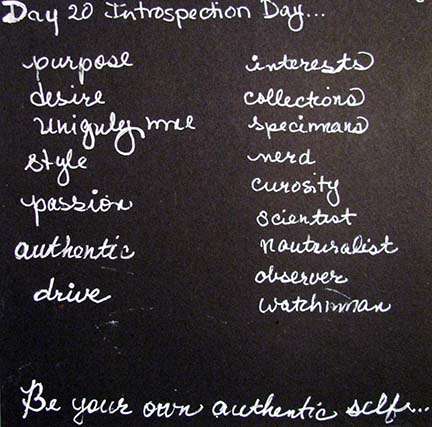 Day 20 Introspection Day...
purpose
desire
Uniquly me
style
passion
authentic
drive
interests
collections
specimans
nerd
curosity
scientist
nauturalist
observer
watchman
Be your own authentic self...